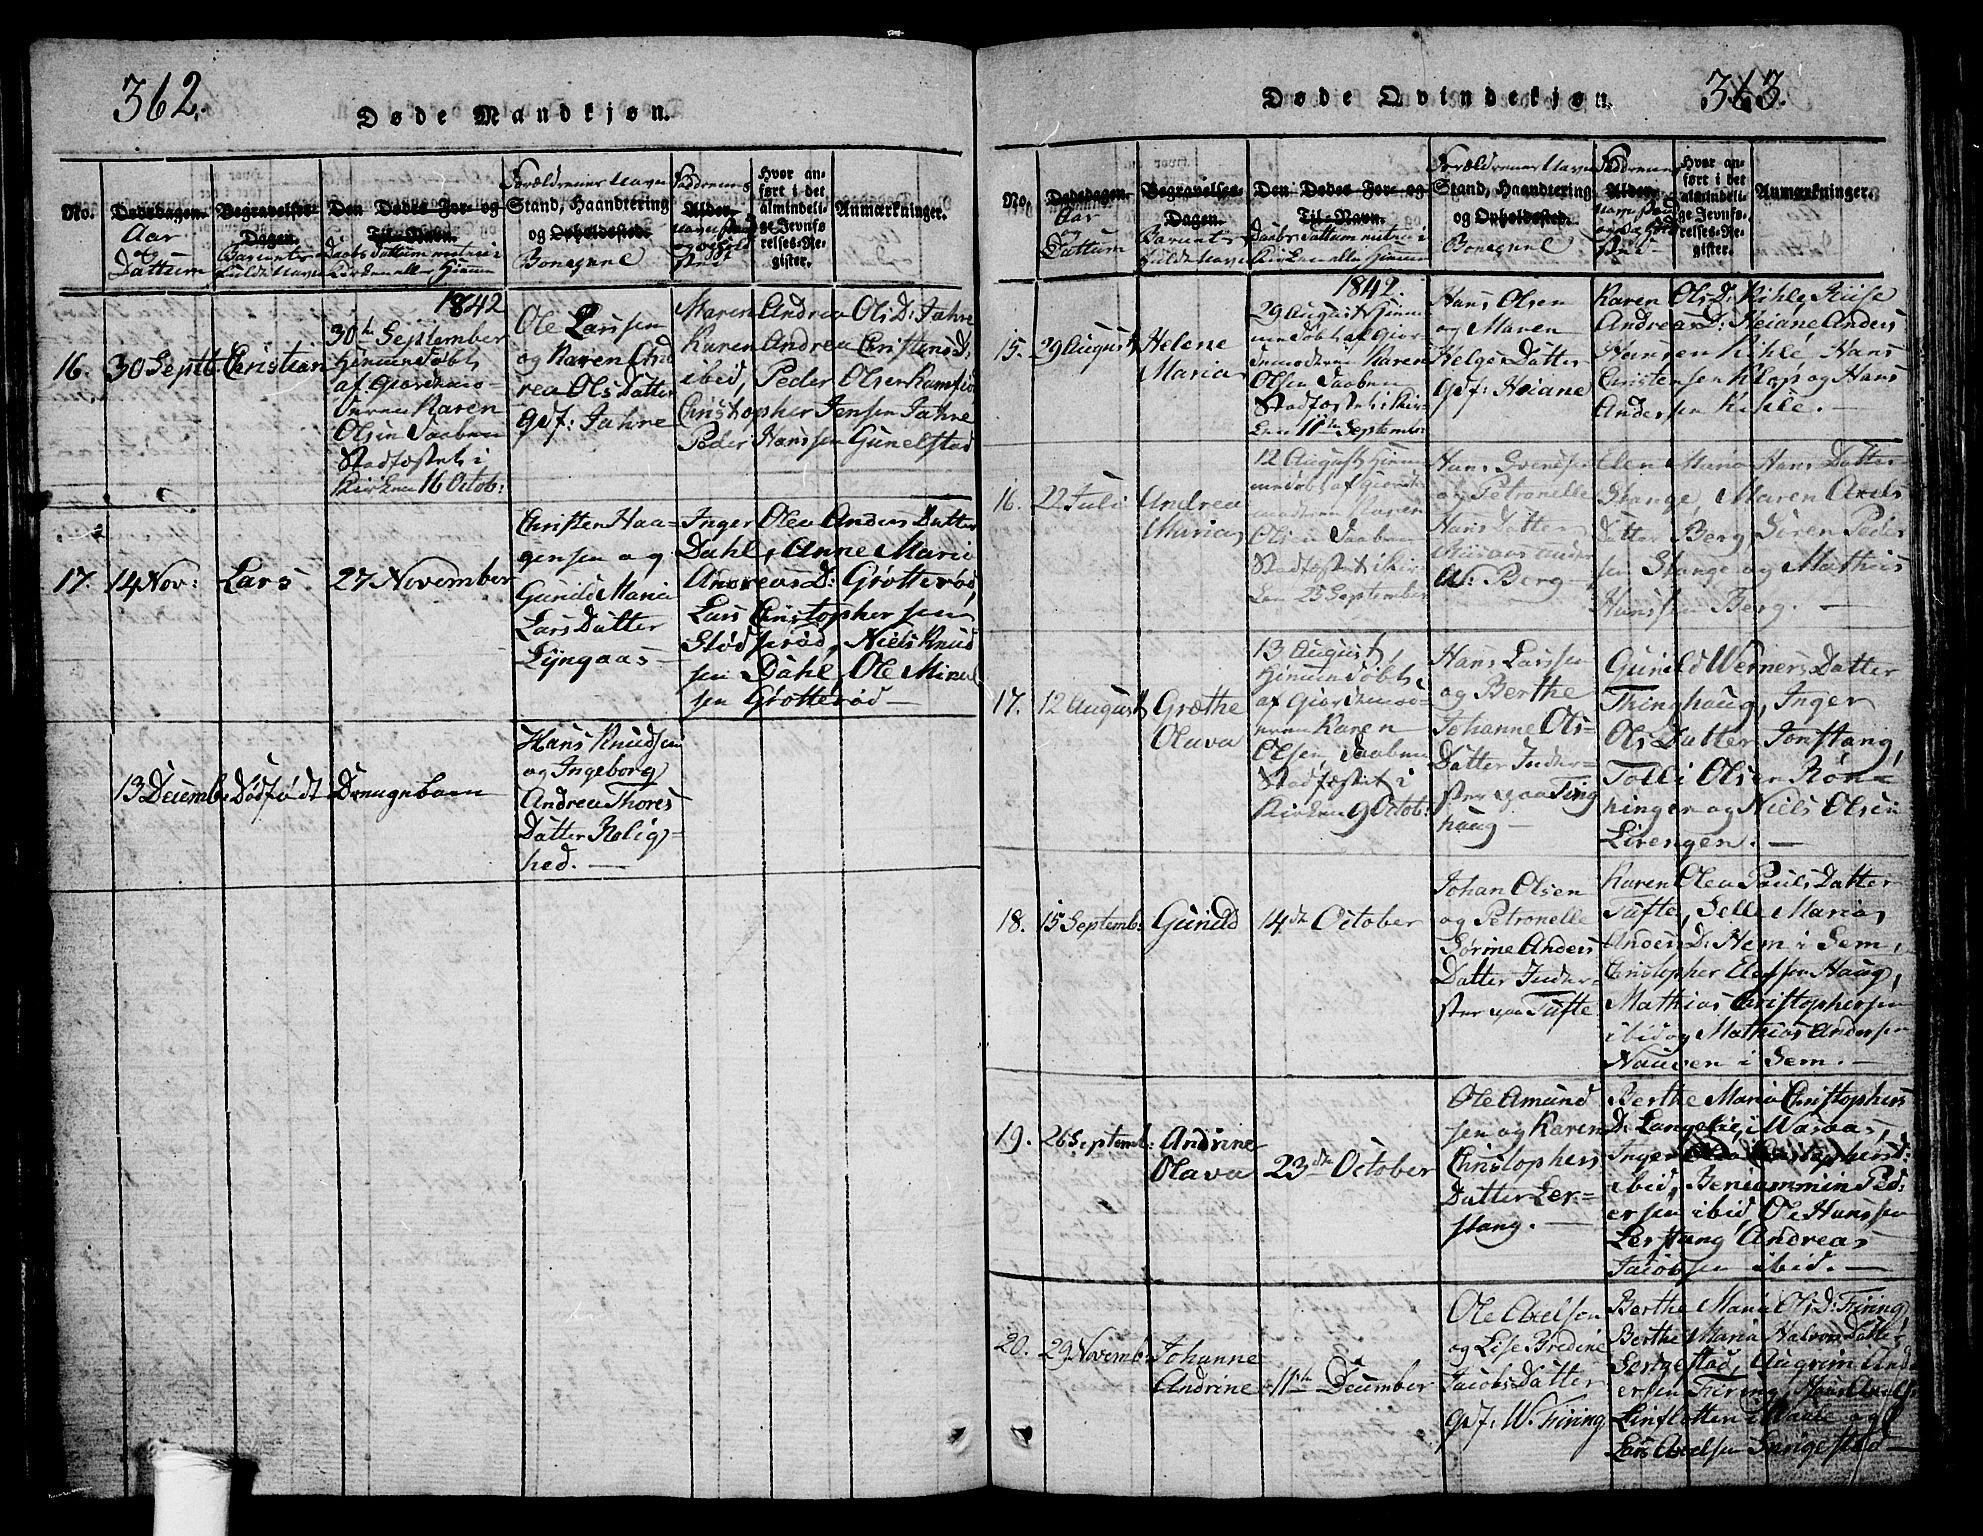 362.
Døde Mandkjøn.
No.
Dødsdagen.
Aar
og
Dattum
Begravelses-
Dagen.
Barnets
fulde Navn
Den Dødes For- og
Til-Navn.
Daabs Dattum enten i
Kirken eller Hiemme
Forældrenes Navn
Stand, Haandtering
og Opholdssted.
Boneguie
Faddernes
Alder.
Navn Stand
og Opholds
sted
Hvor an-
ført i det
almindeli-
ge Jevnfø-
relses-Re-
gister.
Anmærkninger.
16.
30 Septb.
Christian
1842
30te September
hiemmedøbt
af Giordemo-
deren Karen
Olsen Daaben
Stadfæstet i
Kirken 16 Octob:
Ole Larssen
og Karen And
rea Ols Datter
Gdf: Jahre
Maren Andrea Ols D: Jahre
Karen Andrea Christens D:
ibid, Peder Olsen
Christopher Jensen Jahre
Peder Hanssen Gunelstad
17.
14 Nov:
Lars
27 November
Christen Haa-
gensen og
Gunild Maria
Lars Datter
Lÿngaas
Inger Olea Anders Datter
Dahl, Anne Maria
Andreas D: Grotterød,
Lars Christophersen
Stødsrød, Niels Knud
sen Dahl, Ole
sen Grotterød —
13 Decemb:
Dødfødt Drengebarn
Hans Knudsen
og Ingeborg
Andrea Thores
Datter Rolig-
hed. —
363.
Døde Qvindekjøn.
No.
Dødsdagen.
Aar
og
Dattum
Begravelses-
Dagen.
Barnets
fulde Navn
Den Dødes For- og
Til-Navn.
Daabs Dattum enten i
Kirken eller Hiemme
Forældrenes Navn
Stand, Haandtering
og Opholdssted.
Faddernes
Alder.
Navn Stand
og Opholds
sted
Hvor an-
ført i det
almindeli-
ge Jevnfø-
relses-Re-
gister.
Anmærkninger.
15.
29 August
Helene
Maria
1842.
29 August hiem
medøbt af Gior
demoderen Karen
Olsen Daaben
Stadfæstet i Kir
ken 11te Septemb:
Hans Olsen
og Maren
Helge Datter
Gdf: Heiane
Karen Ols D: Kihle
Andreas D: Heiane Anders
Hansen Kihle, Hans
Christensen Klop og Hans
Andersen Kihle. —
16.
22 Juli
Andrea
Maria
12 August hiem
medøbt af Giord
emoderen Karen
Olsen Daaben
Stadfæstet i Kir
ken 25 September
Hans Svends
og Petronelle
Hans Datter
under
W: Berg
Elen Maria Hans Datter
Stange, Maren Axels
Datter Berg, Søren Peder
sen Stange og Mathis
Hanssen Berg. —
17.
12 August
Grethe
Olava
13 August,
hiemmedøbt
af Giordemod-
eren Karen
Olsen, Daaben
Stadfæstet i
Kirken 9 Octob:
Hans Larssen
og Berthe
Johanne Ols-
Datter Inder-
ster paa Ting
haug —
Gunild Werners Datter
Thinghaug, Inger
Ols Datter Jonstang,
Tolli Olsen Røn-
ninger og Niels Olsen
Lirengen. —
18.
15 Septemb:
Gunild
14de October
Johan Olsen
og Petronelle
Sørine Anders
Datter Inder-
ster paa Tufte
Karen Olea Pauls Datter
Tufte, Selle Maria
Anders D: Hem i Sem,
Christopher Elefsen Haug,
Mathias Christophersen
ibid og Mathias Andersen
Nauven i Sem. —
19.
26 Septemb:
Andrine
Olava
23de October
Ole Amund
sen og Karen
Christophers
Datter Ler-
stang. —
Berthe Maria Christophers
D: Langelie,
Inger Olea Christophers D:
ibid, Beniammin Ped:
ersen ibid, Ole Hanssen
Lerstang Andreas
Jacobsen ibid. —
20.
29 Novemb:
Johanne
Andrine
11te December
Ole Axelsen
og Lise Bredine
Jacobs Datter
Gdf: W. Firing
Berthe Maria Ols D: Firing
Berthe Maria Halvors Datter
Sorgestad, Augrim And
ersen Firing,
og
Lars Axelsen